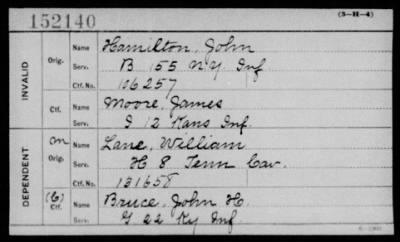 152140
(3-H-4)
INVALID
Orig.
Name Hamilton, John
Serv. B 155 N.Y. Inf
Ctf. No. 106257
Ctf.
Name Moore, James
Serv. I 12 Kans Inf.
DEPENDENT
(m) Orig.
Name Lane, William
Serv. H 8 Tenn Cav.
Ctf. No. 131658
(C) Ctf.
Name Bruce, John H.
Serv. G 22 Ky Inf.